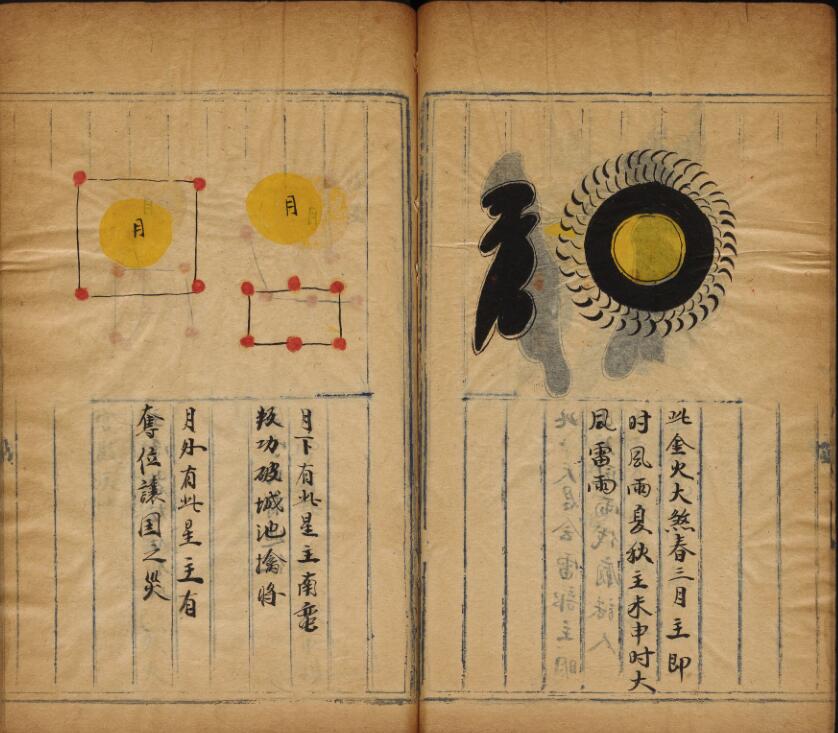 此金火大煞春三月主即
时風雨夏秋主未申时大
风雷雨
月
月下有此星主南蛮
叛功破城池擒将
月
月外有此星主有
奪位讓国之災